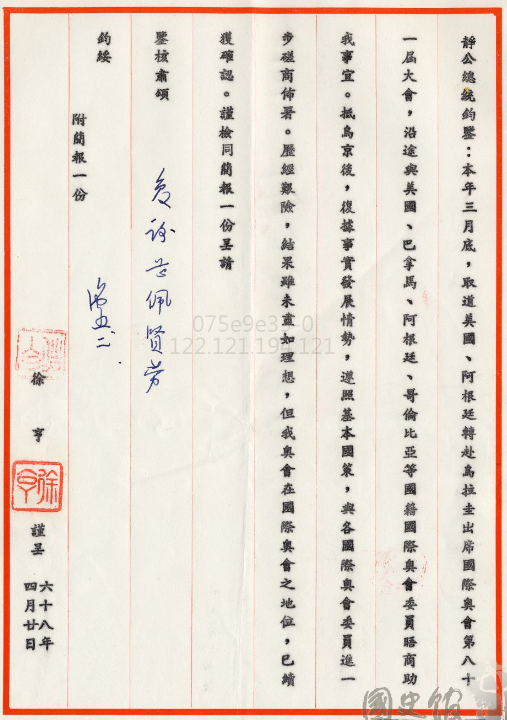 靜公總統鈞鑒：本年三月底，取道美國、阿根廷轉赴烏拉圭出席國際奧會第八十
一屆大會，沿途與美國、巴拿馬、阿根廷、哥倫比亞等國籍國際奧會委員晤商助
我事宜。抵烏京後，復據事實發展情勢，遵照基本國策，與各國際奧會委員進一
步磋商佈署。歷經艱險，結果雖未盡如理想，但我奧會在國際奧會之地位，已續
獲確認。謹檢同簡報一份呈請
鑒核肅頌
鈞綏
附簡報一份
佩賢勞
五、二
徐亨
徐亨
謹呈
六十八年
四月廿日
075e9e3
122.121.19
121
國史館